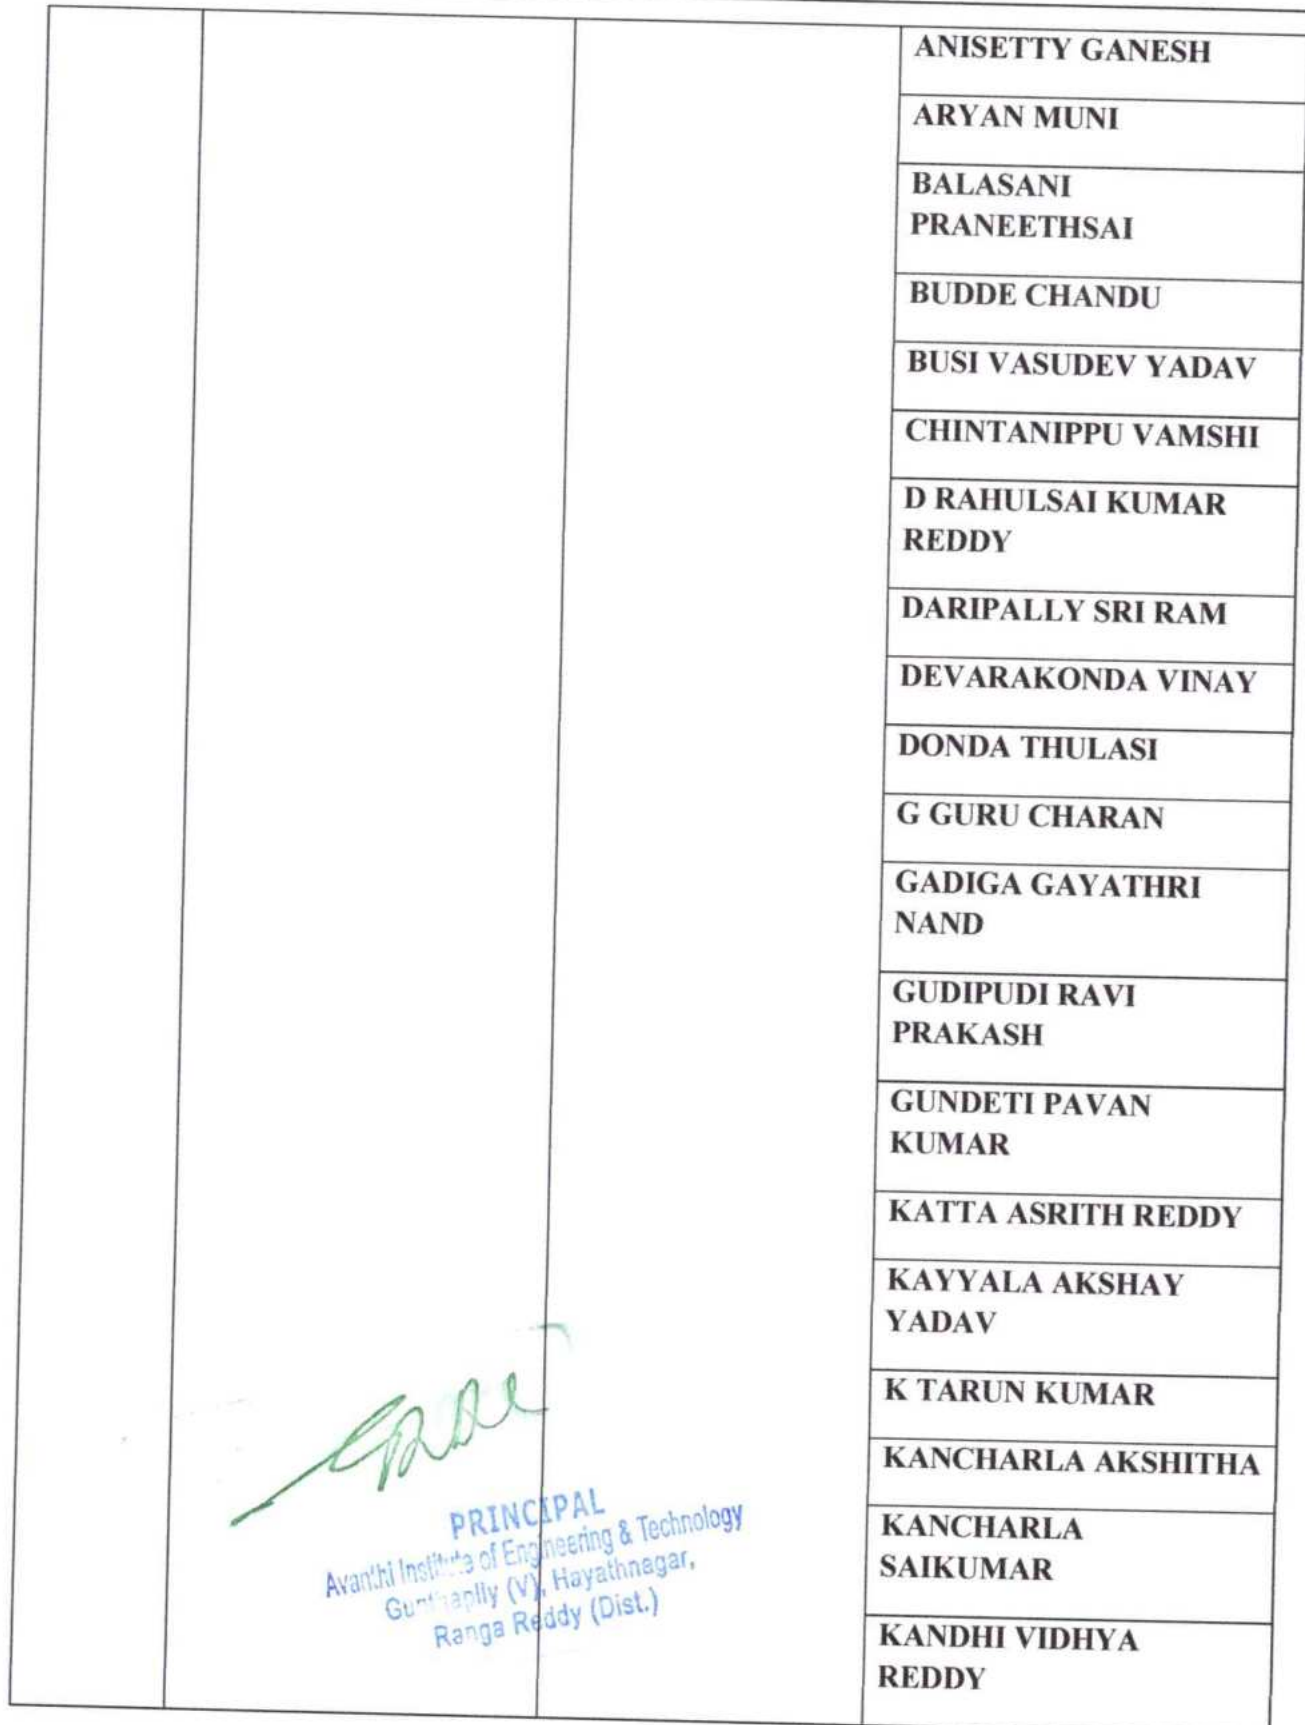 ANISETTY GANESH
ARYAN MUNI
BALASANI
PRANEETHSAI
BUDDE CHANDU
BUSI VASUDEV YADAV
CHINTANIPPU VAMSHI
D RAHULSAI KUMAR
REDDY
DARIPALLY SRI RAM
DEVARAKONDA VINAY
DONDA THULASI
G GURU CHARAN
GADIGA GAYATHRI
NAND
GUDIPUDI RAVI
PRAKASH
GUNDETI PAVAN
KUMAR
KATTA ASRITH REDDY
KAYYALA AKSHAY
YADAV
K TARUN KUMAR
KANCHARLA AKSHITHA
KANCHARLA
SAIKUMAR
KANDHI VIDHYA
REDDY
PRINCIPAL
Avanthi Institute of Engineering & Technology
(V), Hayathnagar,
Ranga Reddy (Dist.)